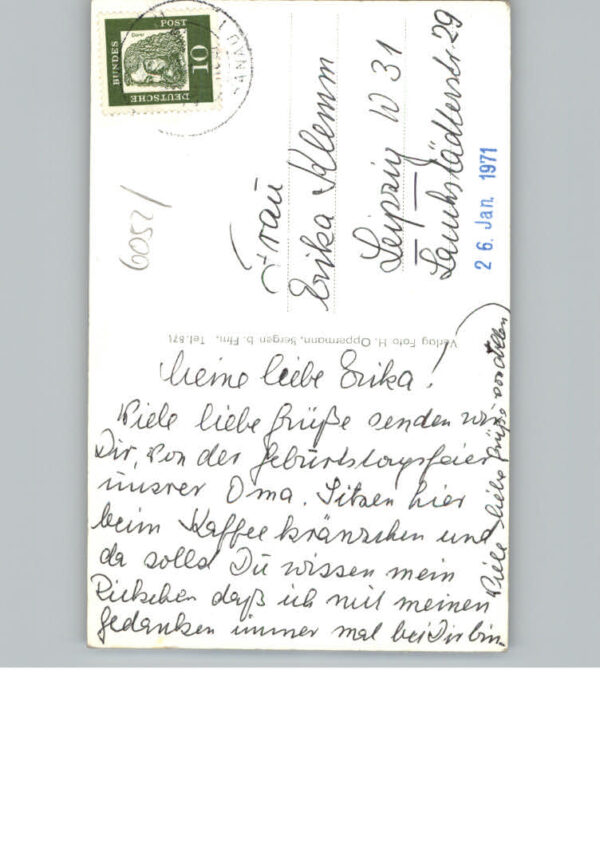 DEUTSCHE
BUNDES
POST
10
Dürer
HANAU 1
6052/
Frau
Erika Klemm
Leipzig W 31
Lauchstädterstr. 29
2 6. Jan. 1971
Verlag Foto H. Oppermann, Bergen b. Ffm., Tel. 871
Meine liebe Erika!
Viele liebe Grüße senden wir
Dir, von der Geburtstagsfeier
unsrer Oma. Sitzen hier
beim Kaffeekränzchen und
da sollst Du wissen mein
daß ich mit meinen
Gedanken immer mal bei Dir bin.
Viele liebe Grüße von allen